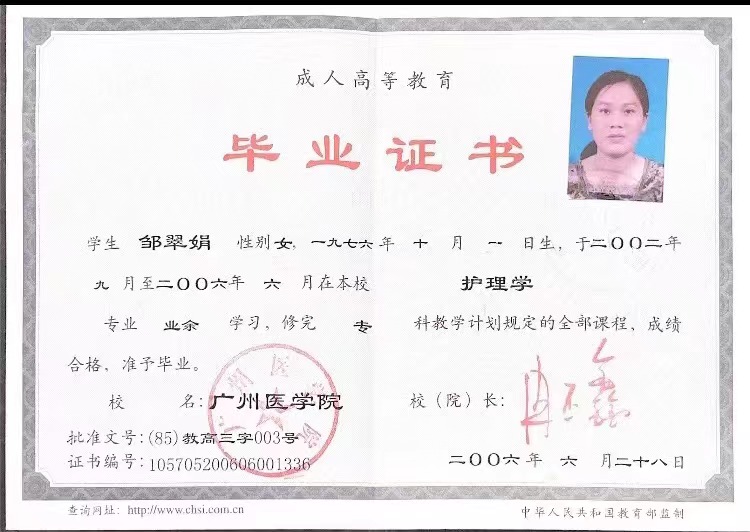 成人高等教育
毕业证书
学生 邹翠娟 性别女,一九七六年 十 月 一 日生,于二〇〇二年
九 月至二〇〇六年 六 月在本校 护理学
专业 业余 学习,修完 专 科教学计划规定的全部课程、成绩
合格,准予毕业。
校 名:广州医学院 校(院)长:
批准文号:(85)教高三字003号
证书编号:105705200606001336 二〇〇六年 六 月二十八日
查询网址:http://www.chsi.com.cn 中华人民共和国教育部监制